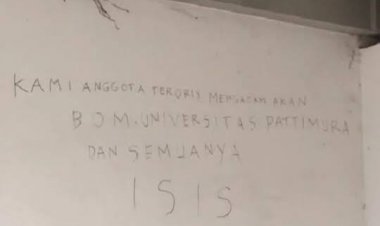 KAMI ANGGOTA TERORIS MENGACAM AKAN
BOM.UNIVERSITAS PATTIMURA
DAN SEMUANYA
ISIS